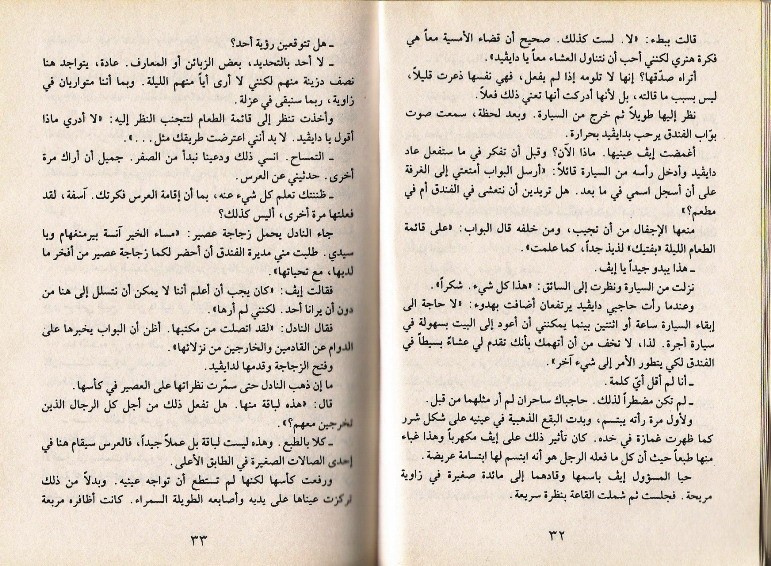 قالت ببطء: «لا. لست كذلك. صحيح أن قضاء الأمسية معاً هي
فكرة هنري لكنني أحب أن نتناول العشاء معاً يا دايڤيد».
أتراه صدّقها؟ إنها لا تلومه إذا لم يفعل، فهي نفسها ذعرت قليلاً،
ليس بسبب ما قالته، بل لأنها أدركت أنها تعني ذلك فعلاً.
نظر إليها طويلاً ثم خرج من السيارة. وبعد لحظة، سمعت صوت
بوّاب الفندق يرحب بدايڤيد بحرارة.
أغمضت إيڤ عينيها. ماذا الآن؟ وقبل أن تفكر في ما ستفعل عاد
دايڤيد وأدخل رأسه من السيارة قائلاً: «أرسل البواب أمتعتي إلى الغرفة
على أن أسجل اسمي في ما بعد. هل تريدين أن نتعشى في الفندق أم في
مطعم؟»
منعها الإجفال من أن تجيب، ومن خلفه قال البواب: «على قائمة
الطعام الليلة «بفتيك» لذيذ جداً، كما علمت».
ـ هذا يبدو جيداً يا إيڤ.
نزلت من السيارة ونظرت إلى السائق: «هذا كل شيء. شكراً».
وعندما رأت حاجبي دايڤيد يرتفعان أضافت بهدوء: «لا حاجة الى
إبقاء السيارة ساعة أو اثنتين بينما يمكنني أن أعود إلى البيت بسهولة في
سيارة أجرة. لذا، لا تخف من أن أتهمك بأنك تقدم لي عشاءً بسيطاً في
الفندق لكي يتطور الأمر إلى شيء آخر».
ـ أنا لم أقل أيّ كلمة.
ـ لم تكن مضطراً لذلك. حاجباك ساحران لم أر مثلهما من قبل.
ولأول مرة رأته يبتسم، وبدت البقع الذهبية في عينيه على شكل شرر
كما ظهرت غمازة في خده. كان تأثير ذلك على إيڤ مكهرباً وهذا غباء
منها طبعاً حيث أن كل ما فعله الرجل هو أنه ابتسم لها ابتسامة عريضة.
حيا المسؤول إيڤ باسمها وقادهما إلى مائدة صغيرة في زاوية
مريحة. فجلست ثم شملت القاعة بنظرة سريعة.
٣٢
ـ هل تتوقعين رؤية أحد؟
ـ لا أحد بالتحديد، بعض الزبائن أو المعارف. عادة، يتواجد هنا
نصف دزينة منهم لكنني لا أرى أياً منهم الليلة. وبما أننا متواريان في
زاوية، ربما سنبقى في عزلة.
وأخذت تنظر إلى قائمة الطعام لتتجنب النظر إليه: «لا أدري ماذا
أقول يا دايڤيد. لا بد أنني اعترضت طريقك مثل...».
ـ التمساح. انسي ذلك ودعينا نبدأ من الصفر. جميل أن أراك مرة
أخرى. حدثيني عن العرس.
ـ ظننتك تعلم كل شيء عنه، بما أن إقامة العرس فكرتك. آسفة، لقد
فعلتها مرة أخرى، أليس كذلك؟
جاء النادل يحمل زجاجة عصير: «مساء الخير آنسة بيرمنغهام ويا
سيدي. طلبت مني مديرة الفندق أن أحضر لكما زجاجة عصير من أفخر ما
لديها، مع تحياتها».
فقالت إيڤ: «كان يجب أن أعلم أننا لا يمكن أن نتسلل إلى هنا من
دون أن يرانا أحد. لكنني لم أرها».
فقال النادل: «لقد اتصلت من مكتبها. أظن أن البواب يخبرها على
الدوام عن القادمين والخارجين من نزلائها».
وفتح الزجاجة وقدمها لدايڤيد.
ما إن ذهب النادل حتى سمّرت نظراتها على العصير في كأسها.
قال: «هذه لباقة منها. هل تفعل ذلك من أجل كل الرجال الذين
تخرجين معهم؟».
ـ كلا بالطبع. وهذه ليست لباقة بل عملاً جيداً، فالعرس سيقام هنا في
إحدى الصالات الصغيرة في الطابق الأعلى.
ورفعت كأسها لكنها لم تستطع أن تواجه عينيه. وبدلاً من ذلك
تركزت عيناها على يديه وأصابعه الطويلة السمراء. كانت أظافره مربعة
٣٣